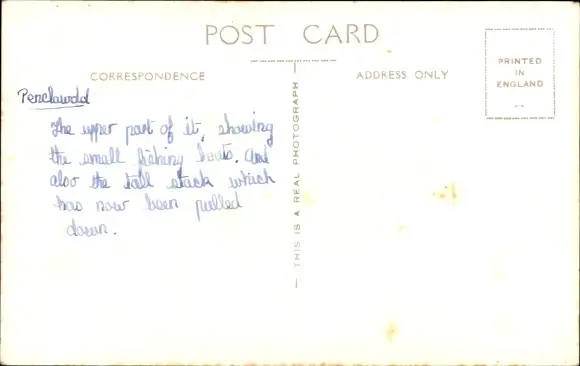 POST CARD
CORRESPONDENCE
ADDRESS ONLY
PRINTED
IN
ENGLAND
THIS IS A REAL PHOTOGRAPH
Penclawdd
The upper part of it, showing
the small fishing boats. And
also the tall stack which
has now been pulled
down.